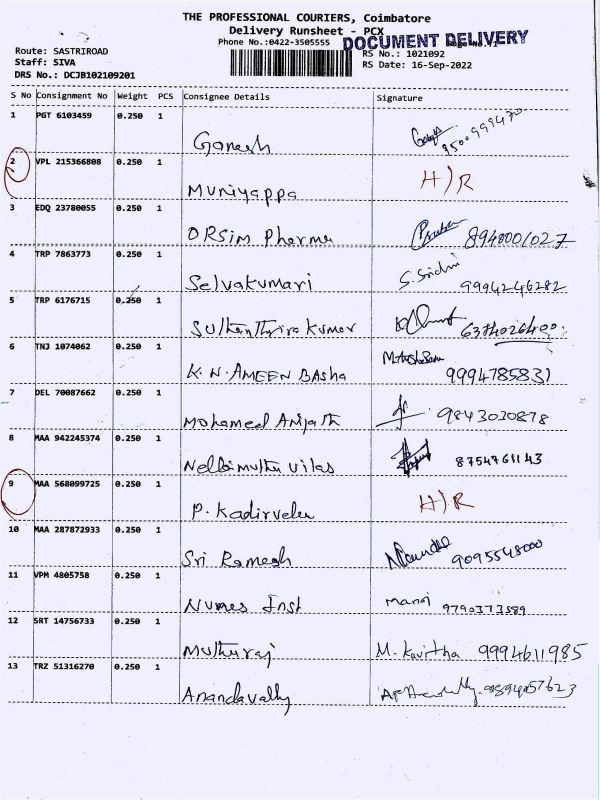 THE PROFESSIONAL COURIERS, Coimbatore
Delivery Runsheet - PCX
Phone No.:0422-3505555
DOCUMENT DELIVERY
Route: SASTRIROAD
RS No.: 1021092
Staff: SIVA
RS Date: 16-Sep-2022
DRS No.: DCJB102109201
S No Consignment No Weight PCS Consignee Details Signature
1 PGT 6103459 0.250 1
Ganesh
2 VPL 215366808 0.250 1
Muniyappa H/R
3 EDQ 23780055 0.250 1
ORSIM Pharma 8940001027
4 TRP 7863773 0.250 1
Selvakumari S. Sridhi 9994246282
5 TRP 6176715 0.250 1
6374026400
6 TNJ 1074062 0.250 1
K. N. AMEEN BASHA 9994785831
7 DEL 70087662 0.250 1
Mohamed 9843030878
8 MAA 942245374 0.250 1
Nellaimuthu vilas 8754761143
9 MAA 568099725 0.250 1
P. Kadirvelu H/R
10 MAA 287872933 0.250 1
Sri Ramesh 9095548000
11 VPM 4805758 0.250 1
Numes Inst Manoj 9790373589
12 SRT 14756733 0.250 1
Muthuraj M. Kavitha 9994611985
13 TRZ 51316270 0.250 1
Anandavally